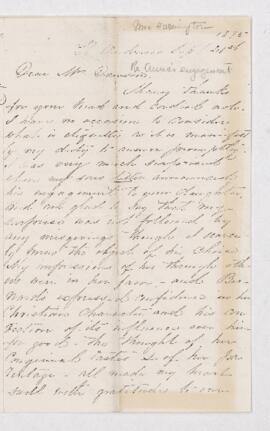 Mrs Harrington
1895
St. Andrews Sept 21st
Re Annie's engagement
Dear Mrs
Many thanks
for your kind and cordial note.
I have no occasion to consider
what is etiquette, it is manifestly
my duty to answer promptly.
I was very much surprised
when my son's letter announced
his engagement to your daughter,
and am glad to say that my
surprise was not followed by
any misgiving - though I scarcely
knew the object of his choice
My impressions of her through others
were in her favor - and
expressed confidence in her
Christian character and his conviction
of its influence over him
for good - the thought of her
congenial tastes & of her
- all made my heart
swell with gratitude to our